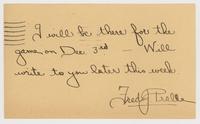 I will be there for the
game on Dec 3rd — Will
write to you later this week
Fred